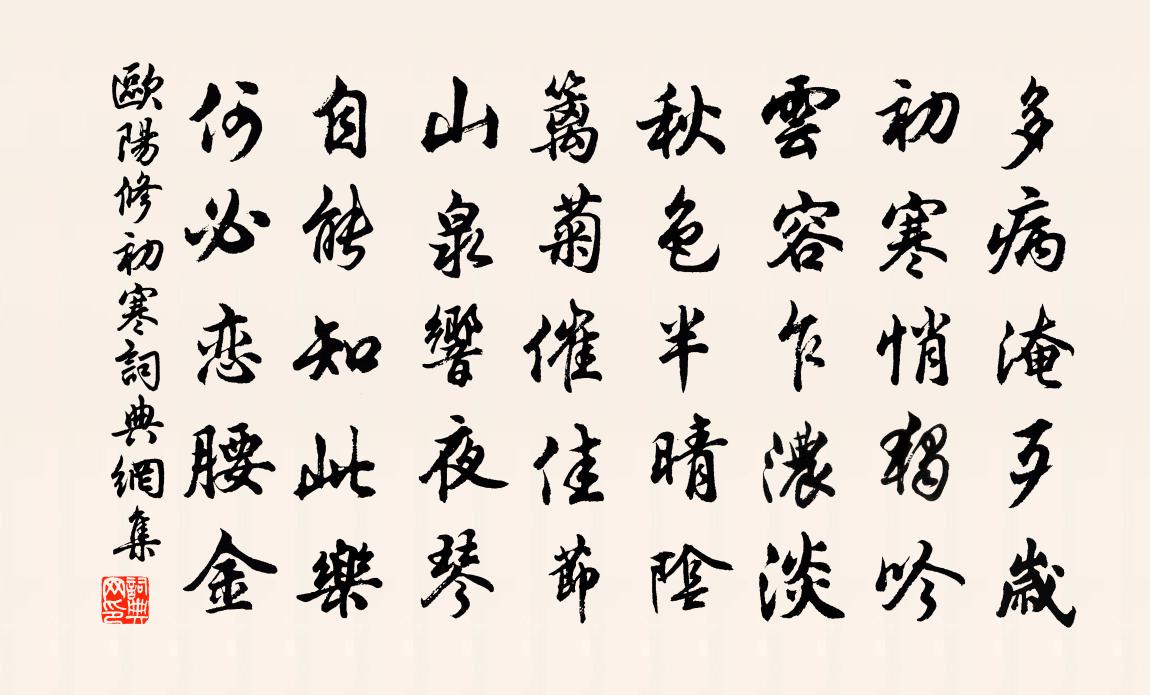 多病淹亙歲
初寒悄獨吟
雲容乍濃淡
秋色半晴陰
籬菊催佳節
山泉響夜琴
自能知此樂
何必恋腰金
歐陽修初寒詞典網集
詞典網印